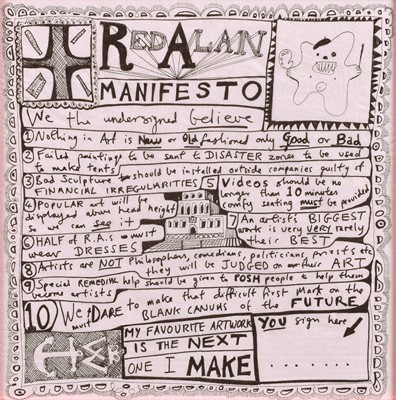 RED ALAN
MANIFESTO
We the undersigned believe
1 Nothing in Art is New or Old fashioned only Good or Bad
2 Failed paintings to be sent to DISASTER zones to be used
to make tents
3 Bad Sculpture should be installed outside companies guilty of
FINANCIAL IRREGULARITIES
5 Videos should be no
longer than 10 minutes
comfy seating must be provided
4 POPULAR art will be
displayed above head height
so we can see it
7 An artists BIGGEST
work is very very rarely
their BEST
6 HALF of R.A.s must
wear DRESSES
8 Artists are NOT Philosophers, comedians, politicians, priests etc
they will be JUDGED on their ART
9 Special REMEDIAL help should be given to POSH people to help them
become artists
10 We must DARE to make that difficult first mark on the
BLANK CANVAS of the FUTURE
MY FAVOURITE ARTWORK
IS THE NEXT
ONE I MAKE
YOU sign here